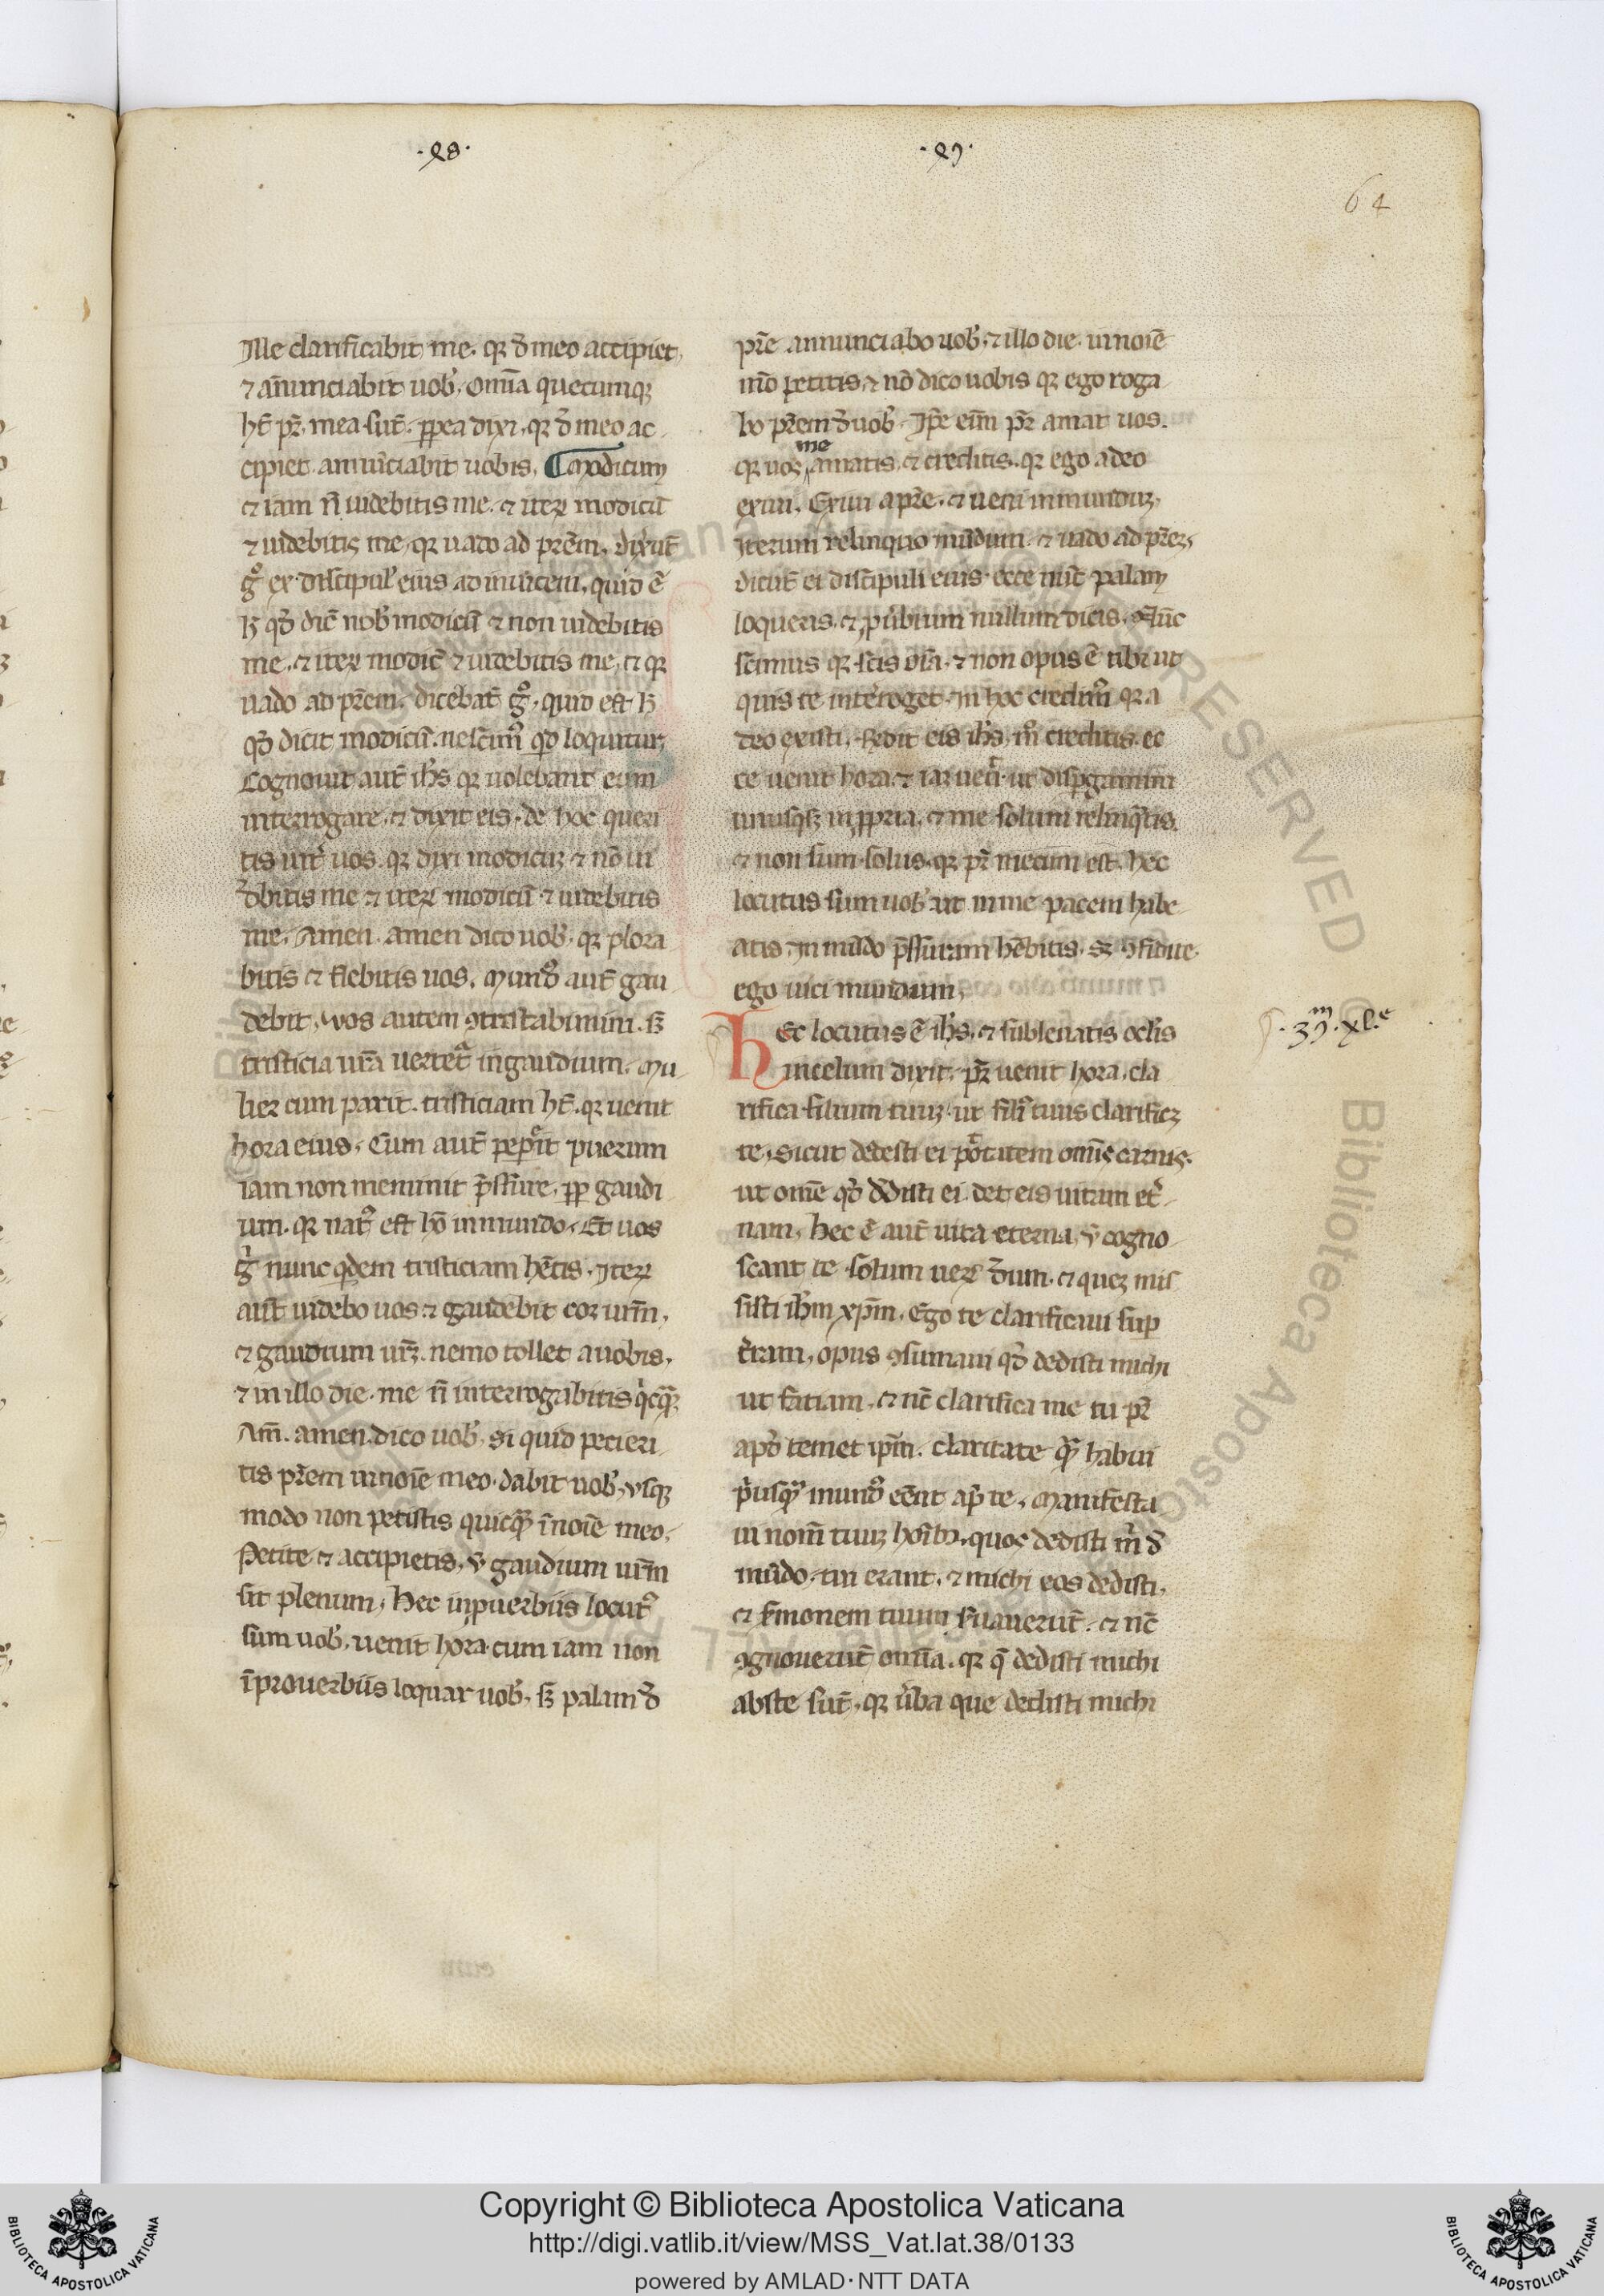 .98.
.99.
64
Ille clarificabit me. qr d̄ meo accipiet.
⁊ an̄unciabit uob̕. Om̄ia quecumq3
hr̄ pr̄. mea sūt. ꝓpea dixi. qr d̄ meo ac
cipiet. annu̅ciabit uobis. ¶ Modicum
et iam n̄ uidebitis me. et iterꝝ modicū
⁊ uidebitis me. qr uado ad prēm. dixer̄t
gͦ ex discipul̕ eius ad inuicem. quid ē
h̄ qd̕ dic̄ nob̕ modicū ⁊ non uidebitis
me. et iterꝝ modic̄ ⁊ uidebitis me. et qr
uado ad prēm. dicebat̄ gͦ. quid est h̄
qd̕ dicit modicū. nescim⁹ qd̕ loquitur.
Cognouit aut̄ ihs̄ qr uolebant eum
interrogare. et dixit eis. de hoc queri
tis int̕ uos. qr dixi modicuꝫ et nō ui
d̄bitis me et iterꝝ modicū et uidebitis
me. Amen amen dico uob̕. qr plora
bitis et flebitis uos. Mund⁹ aut̄ gau
debit. uos autem ꝯtristabimini. sꝫ
tristicia ur̄a uertet̕ in gaudium. Mu
lier cum parit. tristiciam hr̄. qr uenit
hora eius. Cum aut̄ pep̕it puerum
iam non meminit p̄ssure. ꝓp gaudi
um. qr nat⁹ est hō in mundo. Et uos
g̕ nunc qdem tristiciam hētis. Iterꝝ
aut̄ uidebo uos ⁊ gaudebit cor ur̄m.
et gaudium ur̄ꝫ nemo tollet a uobis.
⁊ in illo die. me n̄ interrogabitis q̕cqꝫ
Am̄. amen dico uob̕. si quid pecieri
tis prēm in noīe meo. dabit uob̕. vsq3
modo non petistis quicqꝫ ī noīe meo.
Petite et accipietis. ut gaudium ur̄m
sit plenum. Hec in puerbiis locut⁹
sum uob̕. uenit hora cum iam non
in prouerbiis loquar uob̕. sꝫ palam d̄
pr̄e annunciabo uob̕. ⁊ illo die. in noīe
meo petitis. ⁊ nō dico uobis qr ego roga
bo prēm d̄ uob̕. Ip̄e eim̄ pr̄ amat uos.
me
qr uos amatis. et creditis. qr ego a deo
exiui. Exiui a pr̄e. et ueni in munduꝫ.
Iterum relinquo mūdum. et uado ad pr̄eꝫ.
dicūt ei discipuli eius. ecce nūc palam
loqueris. et pu̕bium nullum dicis. Nūc
scimus qr scis oīa. ⁊ non opus ē tibi ut
quis te interoget. In hoc credim⁹ qr a
deo existi. Rēdit eis ihs̄. m̊ creditis. ec
ce uenit hora. ⁊ iaꝫ uen̄. ut dispgamini
unusq'sꝫ in ꝓpria. et me solum relinq̕tis.
et non sum solus. qr pr̄ mecum est. hec
locutus sum uob̕. ut in me pacem habe
atis. In mūdo p̄ssuram hēbitis. sꝫ ꝯfidite.
ego uici mundum.
Hec locutus ē ihs̄. et subleuatis ocl̕is
.39.m xl.e
in celum dixit. pr̄ uenit hora. cla
rifica filium tuuꝫ. ut fili⁹ tuus clarificꝫ
te. Sicut dedisti ei potatem om̄is carnis.
ut om̄e qd̕ d̄disti ei. det eis uitam et̕
nam. hec ē aut̄ uita eterna. ut cogno
scant te solum ueꝝ d̄um. et queꝫ mis
sisti ihm̄ xpm̄. Ego te clarificaui sup
t̕ram. opus ꝯsumaui qd̕ dedisti michi
ut faciam. et nc̄ clarifica me tu pr̄
apd̕ temet ip̄m. claritate qꝫ habui
p̕usqꝫ mund⁹ eēet ap̄ te. Manifesta
ui nom̄ tuuꝫ hoīb3. quos dedisti m̕ d̄
mūdo. tui erant. ⁊ michi eos dedisti.
et s̕monem tuum s̕uauerūt. et nc̄
ꝯgnouerūt om̄ia. qr q̄ dedisti michi
abs te sūt. qr u̕ba que dedisti michi
Copyright © Biblioteca Apostolica Vaticana
http://digi.vatlib.it/view/MSS_Vat.lat.38/0133
powered by AMLAD·NTT DATA
BIBLIOTECA APOSTOLICA VATICANA
BIBLIOTECA APOSTOLICA VATICANA